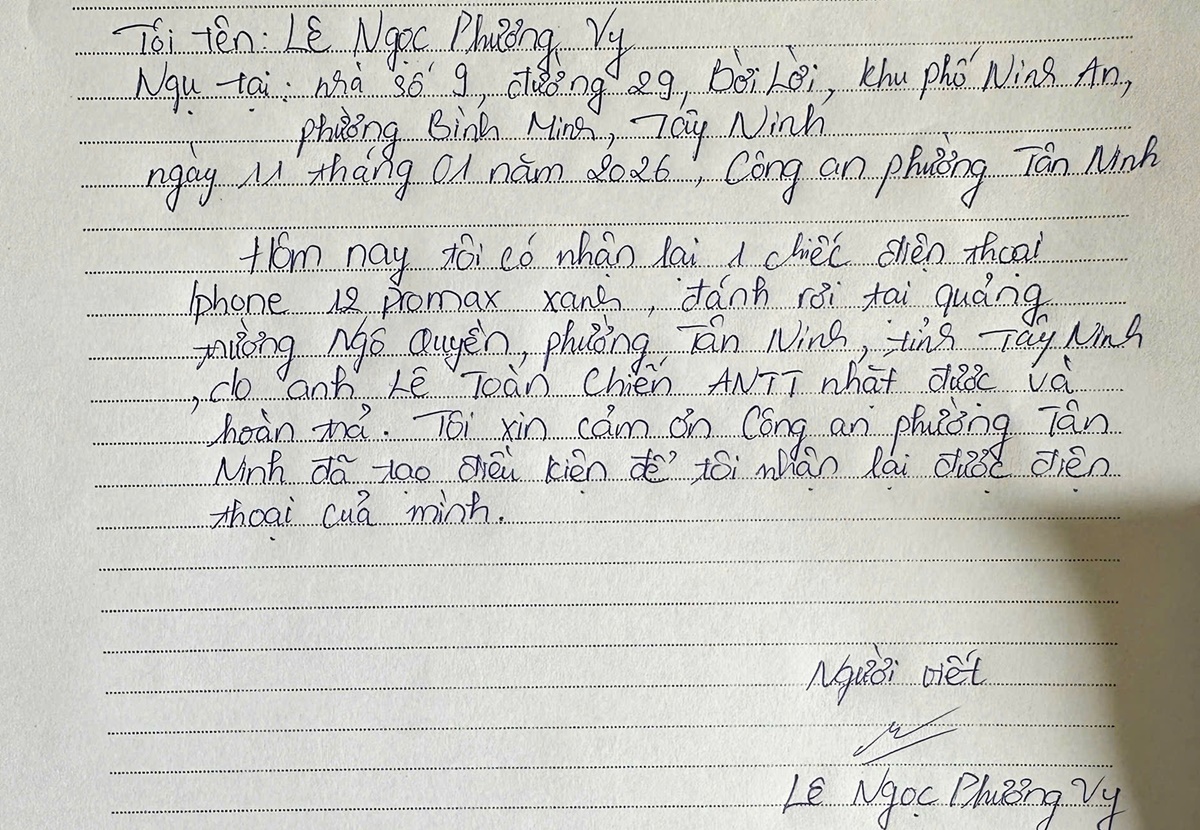 Tôi tên: Lê Ngọc Phương Vy
Ngụ tại: nhà số 9, đường 29, Bời Lời, khu phố Ninh An,
phường Bình Minh, Tây Ninh
ngày 11 tháng 01 năm 2026, Công an phường Tân Ninh
Hôm nay tôi có nhận lại 1 chiếc điện thoại
Iphone 12 promax xanh, đánh rơi tại quảng
trường Ngô Quyền, phường Tân Ninh, tỉnh Tây Ninh
, do anh Lê Toàn Chiến ANTT nhặt được và
hoàn trả. Tôi xin cảm ơn Công an phường Tân
Ninh đã tạo điều kiện để tôi nhận lại được điện
thoại của mình.
Người viết
Lê Ngọc Phương Vy